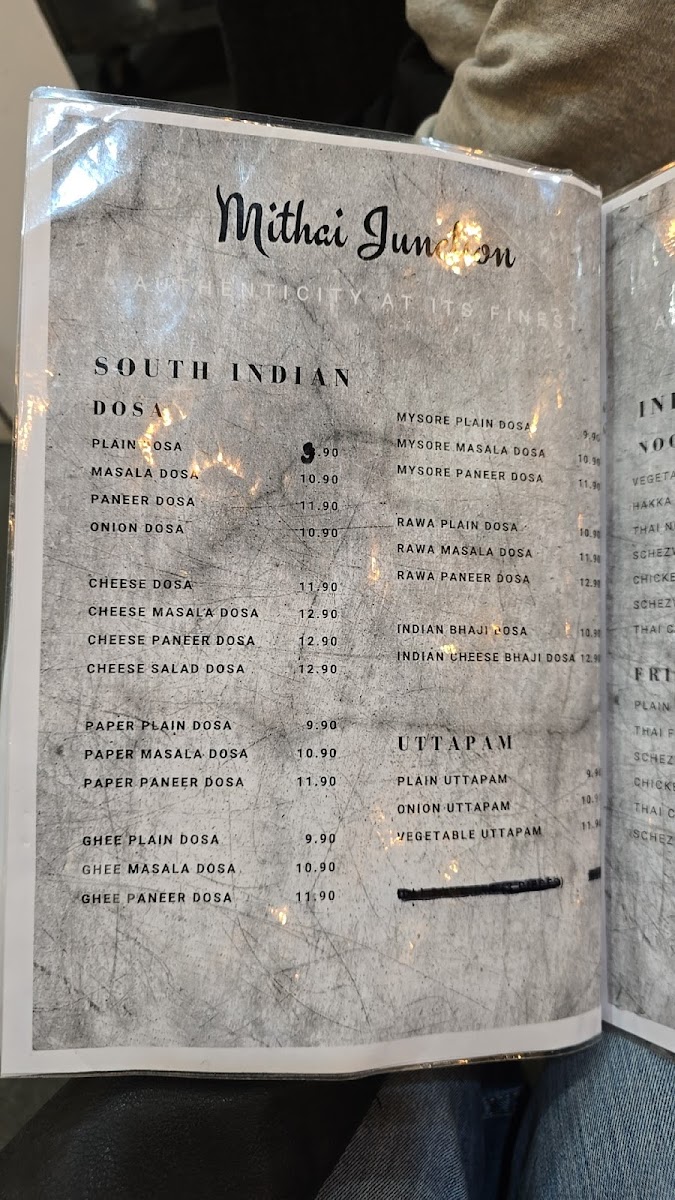 Mithai Junction
AUTHENTICITY AT ITS FINEST
SOUTH INDIAN
DOSA
PLAIN DOSA 9.90
MASALA DOSA 10.90
PANEER DOSA 11.90
ONION DOSA 10.90
CHEESE DOSA 11.90
CHEESE MASALA DOSA 12.90
CHEESE PANEER DOSA 12.90
CHEESE SALAD DOSA 12.90
PAPER PLAIN DOSA 9.90
PAPER MASALA DOSA 10.90
PAPER PANEER DOSA 11.90
GHEE PLAIN DOSA 9.90
GHEE MASALA DOSA 10.90
GHEE PANEER DOSA 11.90
MYSORE PLAIN DOSA 9.90
MYSORE MASALA DOSA 10.90
MYSORE PANEER DOSA 11.90
RAWA PLAIN DOSA 10.90
RAWA MASALA DOSA 11.90
RAWA PANEER DOSA 12.90
INDIAN BHAJI DOSA 10.90
INDIAN CHEESE BHAJI DOSA 12.90
UTTAPAM
PLAIN UTTAPAM 9.90
ONION UTTAPAM
VEGETABLE UTTAPAM
HAKKA
PLAIN